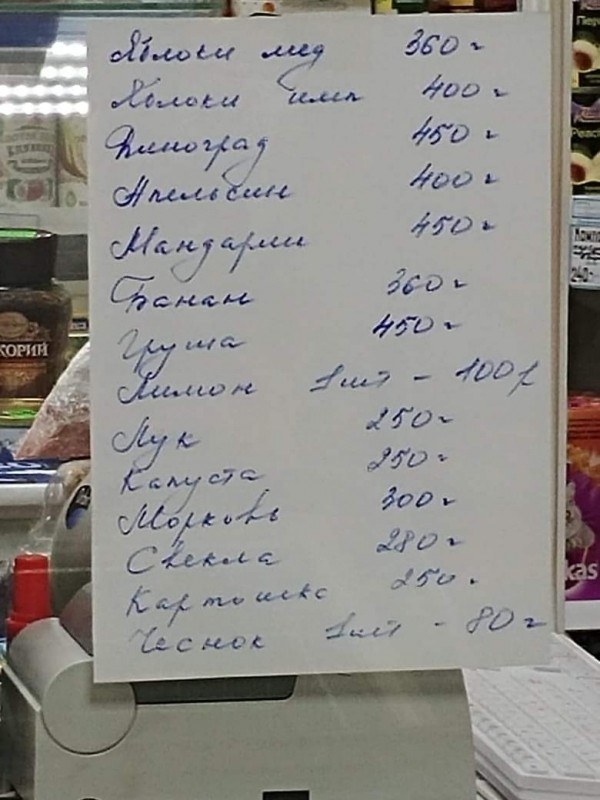 Яблоки мед 360 г
Яблоки имп 400 г
Виноград 450 г
Апельсин 400 г
Мандарин 450 г
Банан 360 г
Груша 450 г
Лимон 1шт - 100 р
Лук 250 г
Капуста 250 г
Морковь 300 г
Свекла 280 г
Картошка 250 г
Чеснок 1шт - 80 г
КОРИЙ
240
kas